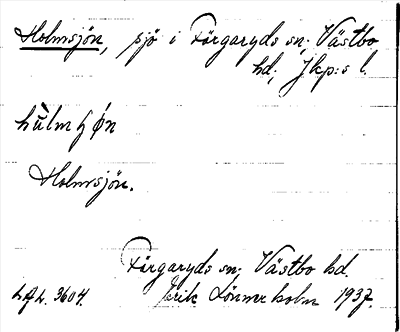 Holmsjön, sjö i Färgaryds sn; Västbo
hd; Jkp:s l.
hùlmʃøn
Holmsjön.
Färgaryds sn; Västbo hd.
LAL. 3604. Erik Lönnerholm 1937.